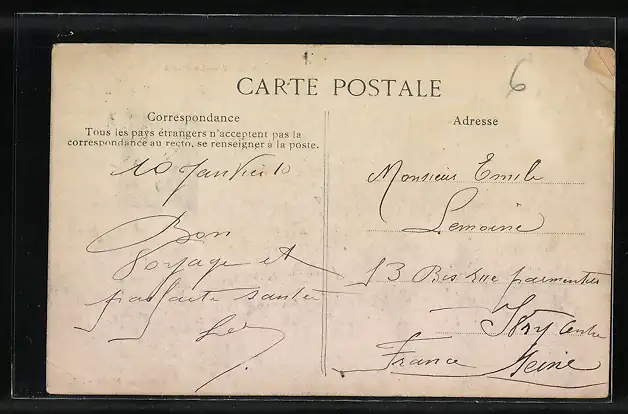 6
CARTE POSTALE
Correspondance
Tous les pays étrangers n'acceptent pas la
correspondance au recto, se renseigner à la poste.
10 Janvier 10
Bon
Voyage et
parfaite santé
Adresse
Monsieur Emile
Lemoine
13 Bis rue parmentier
Ivry Centre
France Seine